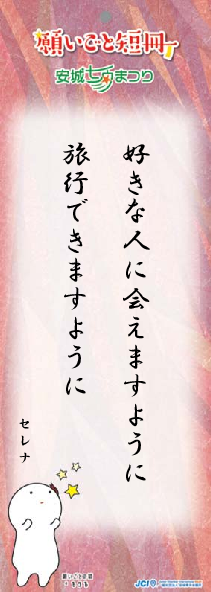 願いごと短冊
安城七夕まつり
好きな人に会えますように
旅行できますように
セレナ
JCI